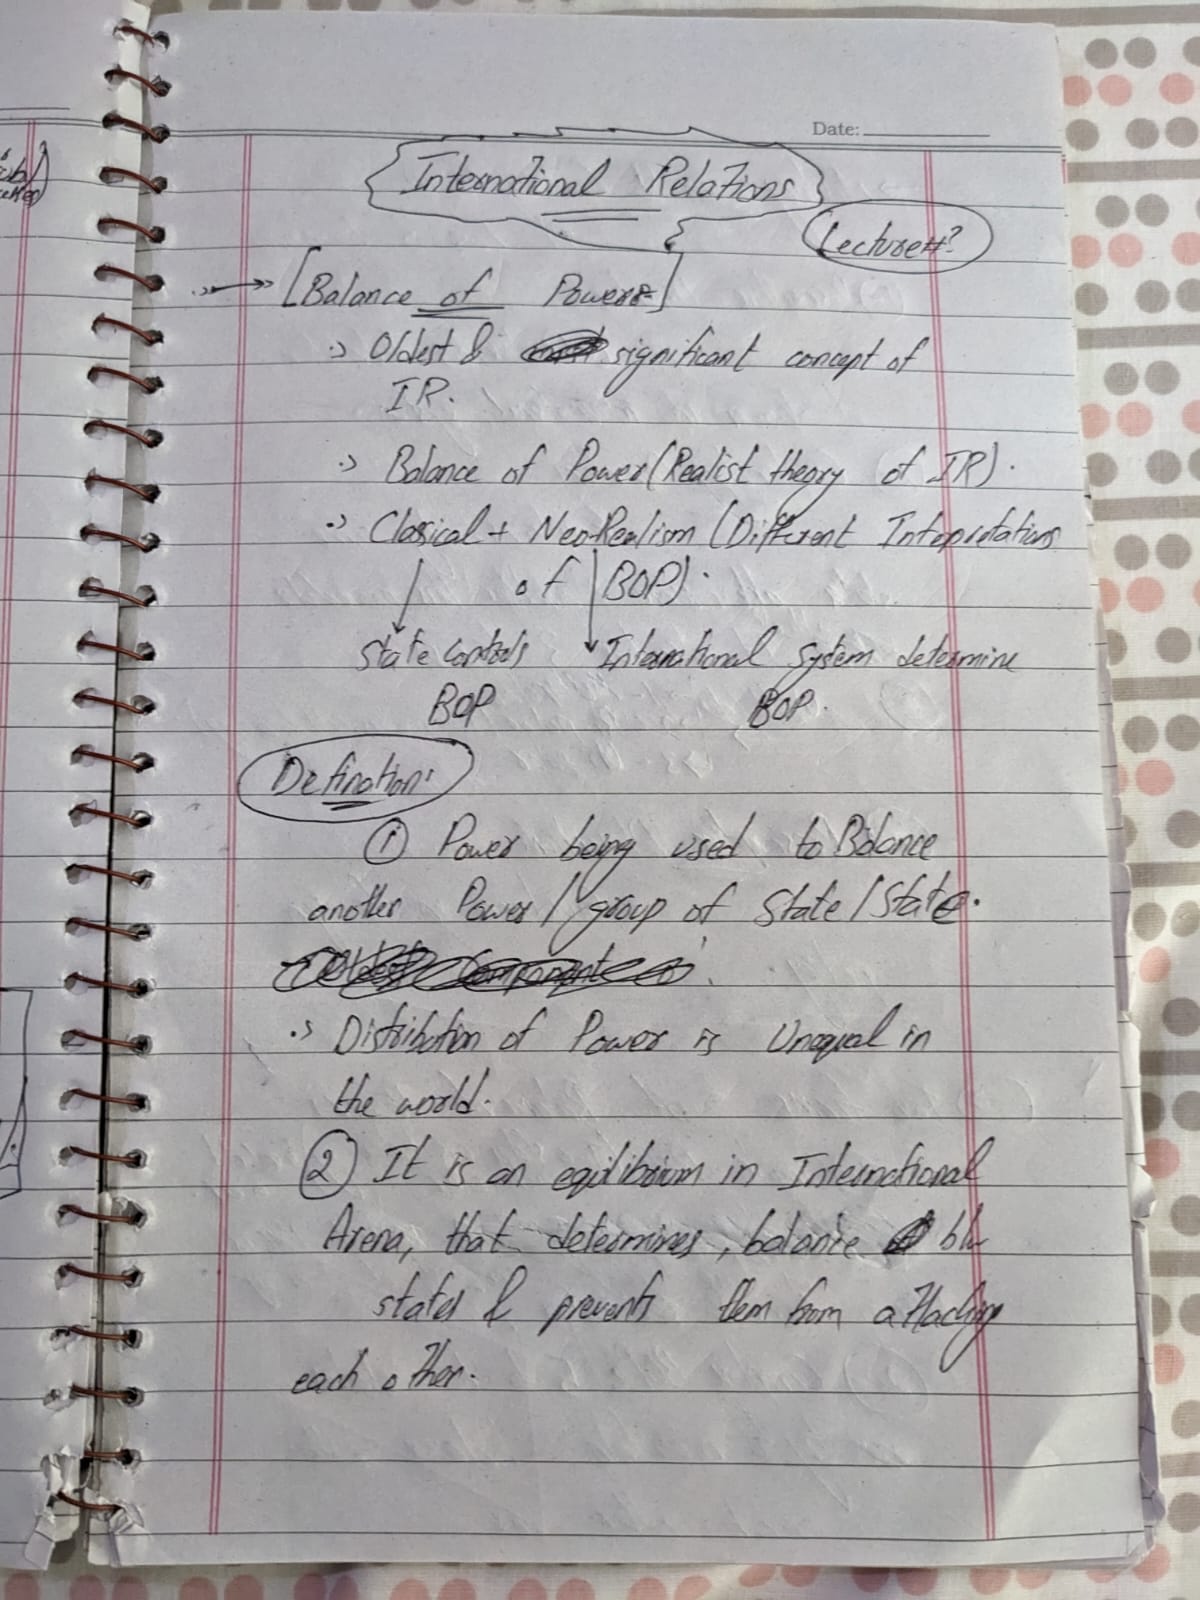 Date:
International Relations
Lecture#?
[Balance of Powers]
Oldest & significant concept of
IR.
Balance of Power (Realist theory of IR).
Clasical + Neo-Realism (Different Intepretations
of BOP).
State controls
International System determine
BOP
BOP.
Defination:
① Power being used to Balance
another Power / group of State / State.
Distribution of Power is Unequal in
the world.
② It is an eqilibrium in International
Arena, that determines, balance b/w
states & prevents them from attacking
each other.